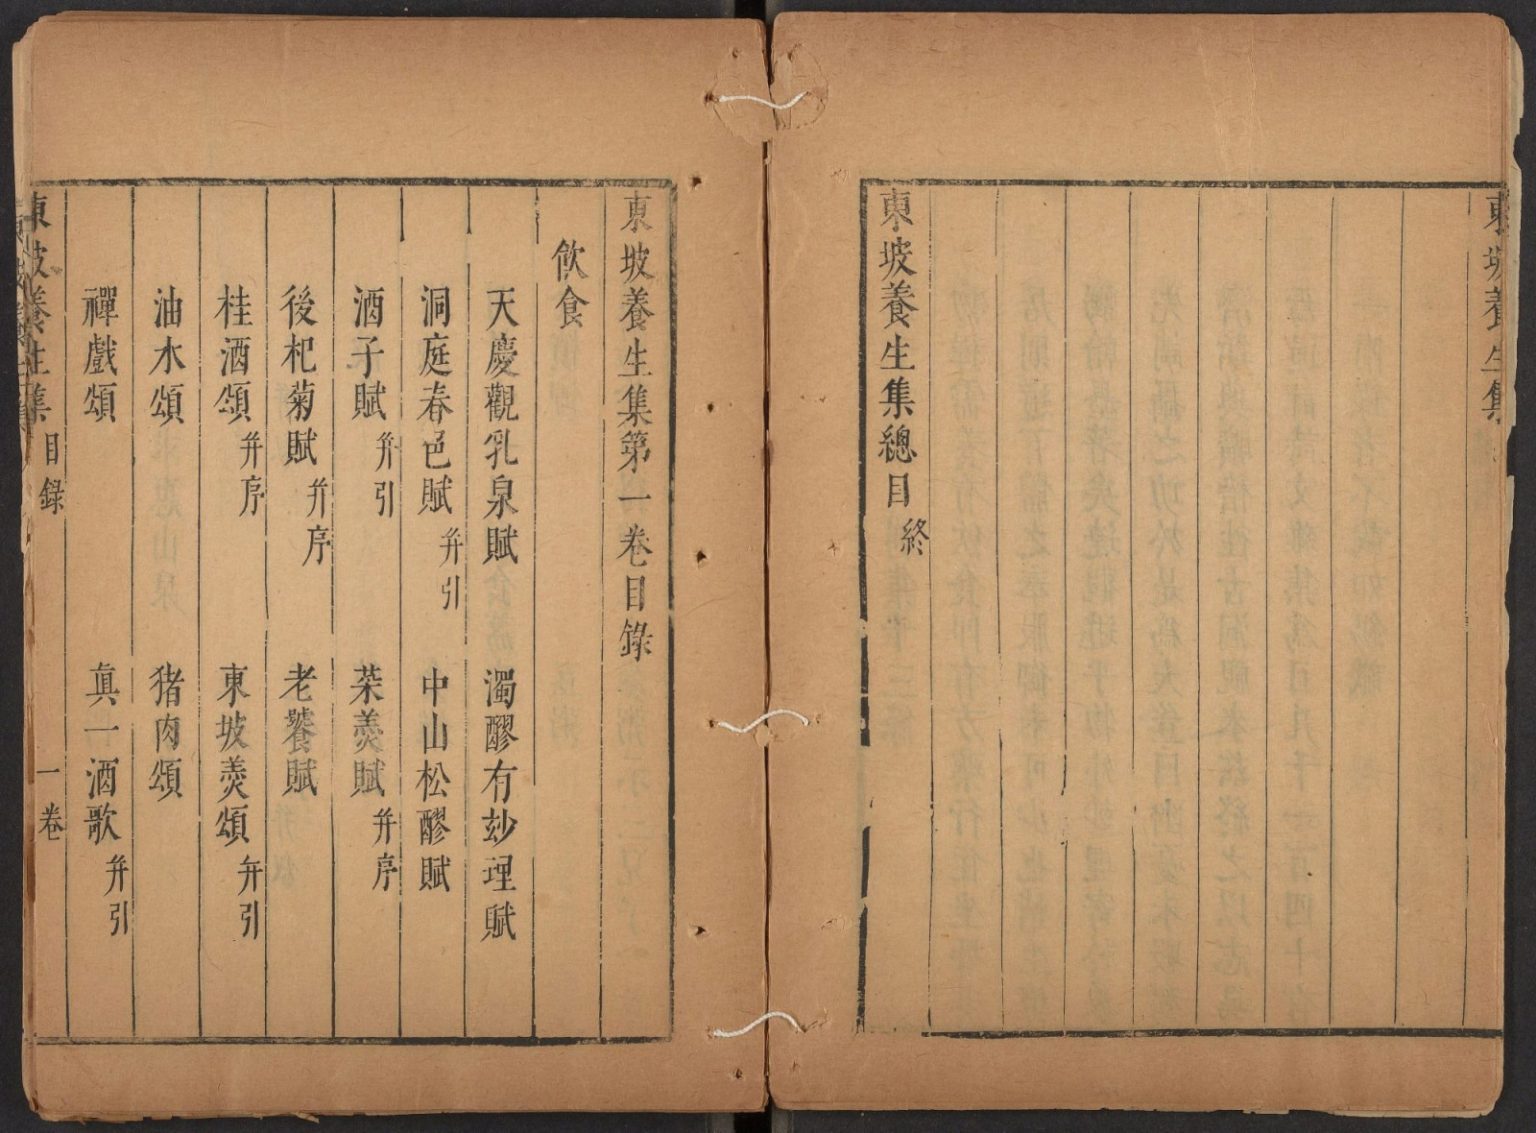 東坡養生集
東坡養生集總目終
東坡養生集第一卷目錄
飲食
天慶觀乳泉賦 濁醪有玅理賦
洞庭春色賦并引 中山松醪賦
酒子賦并引 菜羹賦并序
後杞菊賦并序 老饕賦
桂酒頌并序 東坡羹頌并引
油水頌 猪肉頌
禪戲頌 真一酒歌并引
東坡養生集 目錄 一卷